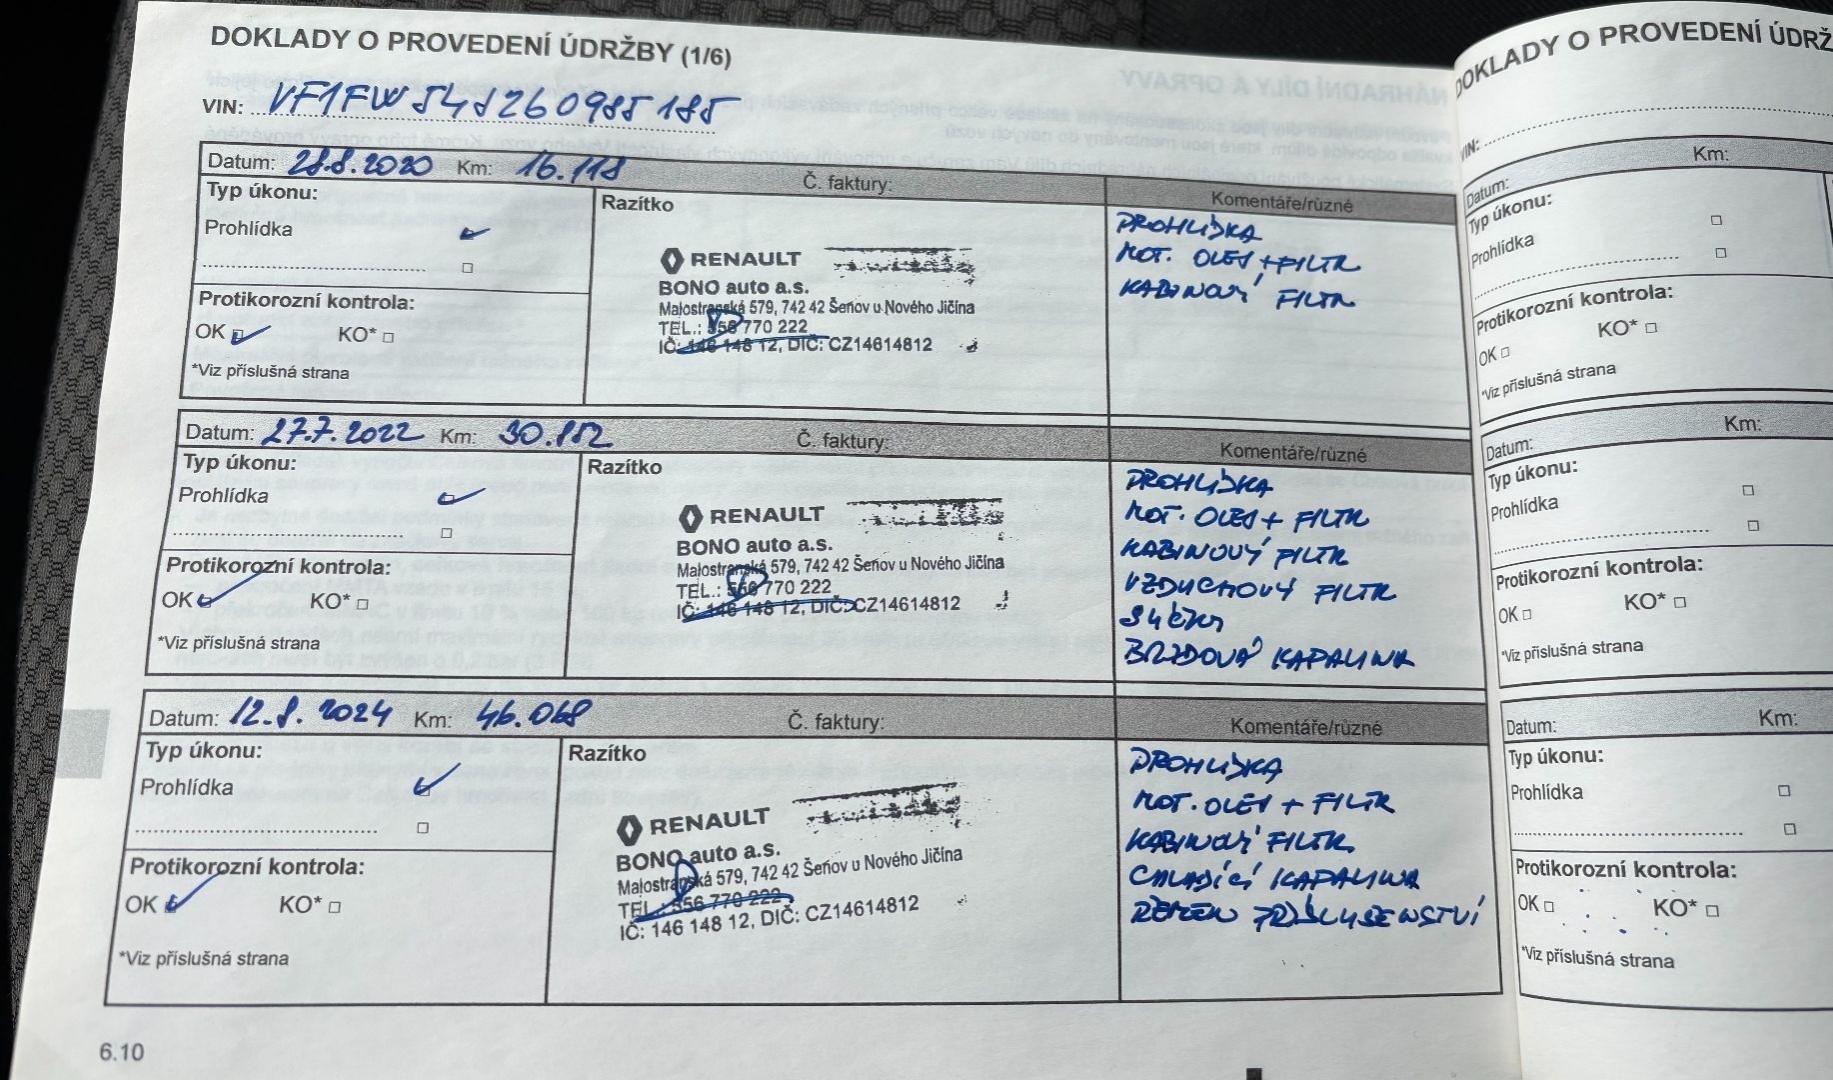 DOKLADY O PROVEDENÍ ÚDRŽBY (1/6)
VIN: VF1FW54J260985185
Datum: 28.8.2020 Km: 16.118 Č. faktury: Komentáře/různé
Typ úkonu:
Prohlídka
Protikorozní kontrola:
OK KO*
*Viz příslušná strana
Razítko
RENAULT
BONO auto a.s.
Malostranská 579, 742 42 Šenov u Nového Jičína
TEL.: 556 770 222
IČ: 146 148 12, DIČ: CZ14614812
PROHLÍDKA
MOT. OLEJ + FILTR
KABINOVÝ FILTR
Datum: 27.7.2022 Km: 30.112 Č. faktury: Komentáře/různé
Typ úkonu:
Prohlídka
Protikorozní kontrola:
OK KO*
*Viz příslušná strana
Razítko
RENAULT
BONO auto a.s.
Malostranská 579, 742 42 Šenov u Nového Jičína
TEL.: 556 770 222
IČ: 146 148 12, DIČ: CZ14614812
PROHLÍDKA
MOT. OLEJ + FILTR
KABINOVÝ FILTR
VZDUCHOVÝ FILTR
SVÍČKY
BRZDOVÁ KAPALINA
Datum: 12.8.2024 Km: 46.068 Č. faktury: Komentáře/různé
Typ úkonu:
Prohlídka
Protikorozní kontrola:
OK KO*
*Viz příslušná strana
Razítko
RENAULT
BONO auto a.s.
Malostranská 579, 742 42 Šenov u Nového Jičína
TEL.: 556 770 222
IČ: 146 148 12, DIČ: CZ14614812
PROHLÍDKA
MOT. OLEJ + FILTR
KABINOVÝ FILTR
CHLADÍCÍ KAPALINA
ŘEMEN PŘÍSLUŠENSTVÍ
6.10
DOKLADY O PROVEDENÍ ÚDRŽ
VIN:
Datum: Km:
Typ úkonu:
Prohlídka
Protikorozní kontrola:
OK KO*
*Viz příslušná strana
Datum: Km:
Typ úkonu:
Prohlídka
Protikorozní kontrola:
OK KO*
*Viz příslušná strana
Datum: Km:
Typ úkonu:
Prohlídka
Protikorozní kontrola:
OK KO*
*Viz příslušná strana